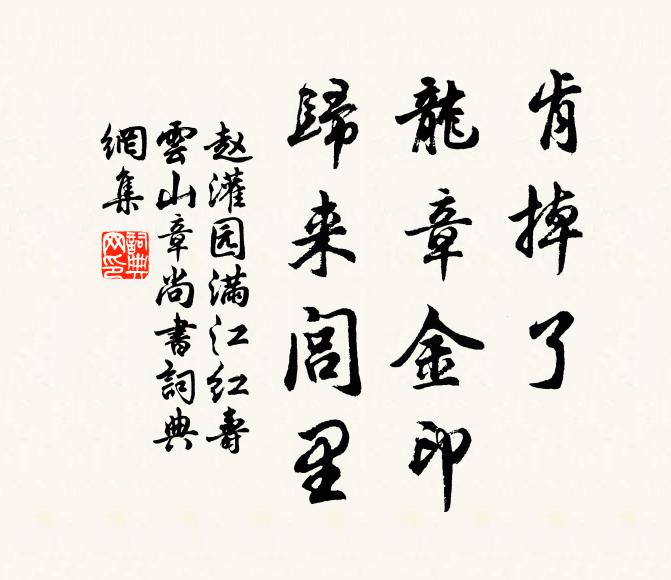 肯掉了
龍章金印
歸来閭里
赵灌园满江红壽
雲山章尚書詞典
網集
詞典
网印